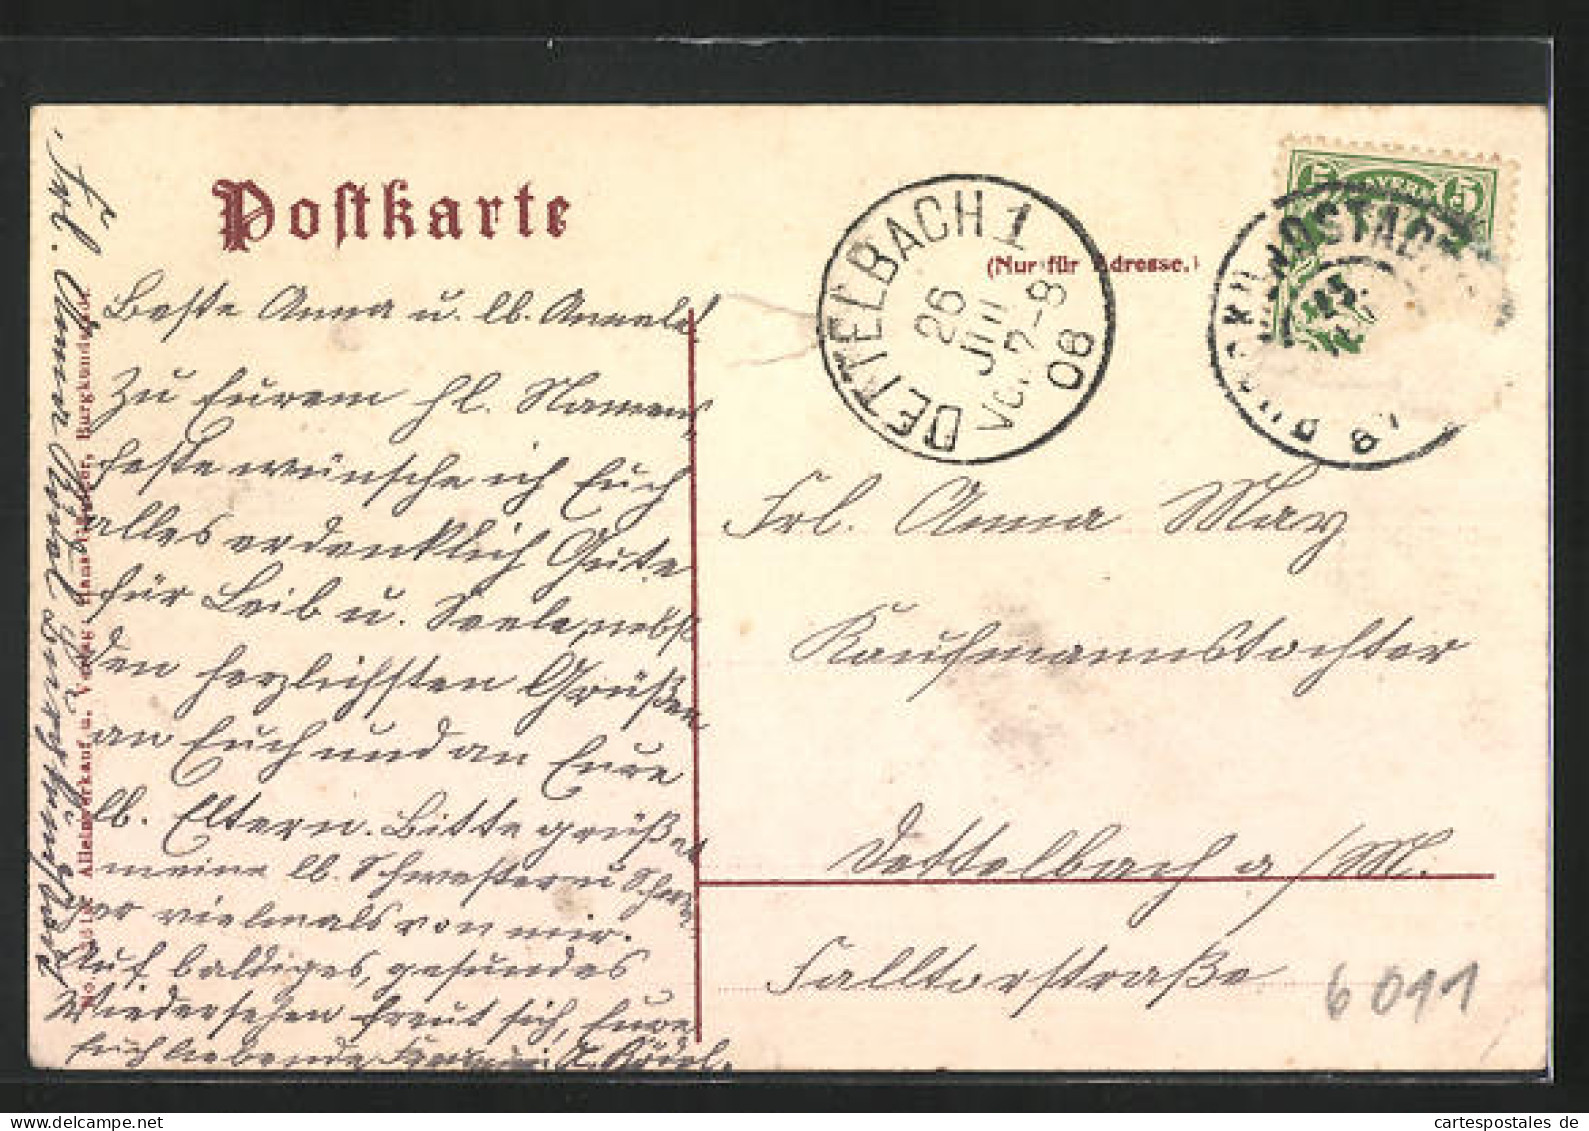 Postkarte
(Nur für Adresse.)
DETTELBACH 1
26
JUL
VOR 7-8
06
5 BAYERN 5
Beste Anna u. lb. Annale!
Zu Eurem hl. Namens
feste wünsche ich Euch
alles erdenklich Gute
für Leib u. Seele, nebst
den herzlichsten Grüßen
an Euch und an Eure
lb. Eltern. Bitte grüßet
meine lb. Schwestern u
vielmals von mir.
Auf baldiges, gesundes
Wiedersehen freut sich, Eure
Euch liebende
Frl. Anna May
Kaufmannstochter
Dettelbach a/M.
Falltorstraße.
6011
Frl. Anna
Alleinverkauf u. Verlag: Hans
cartespostales de